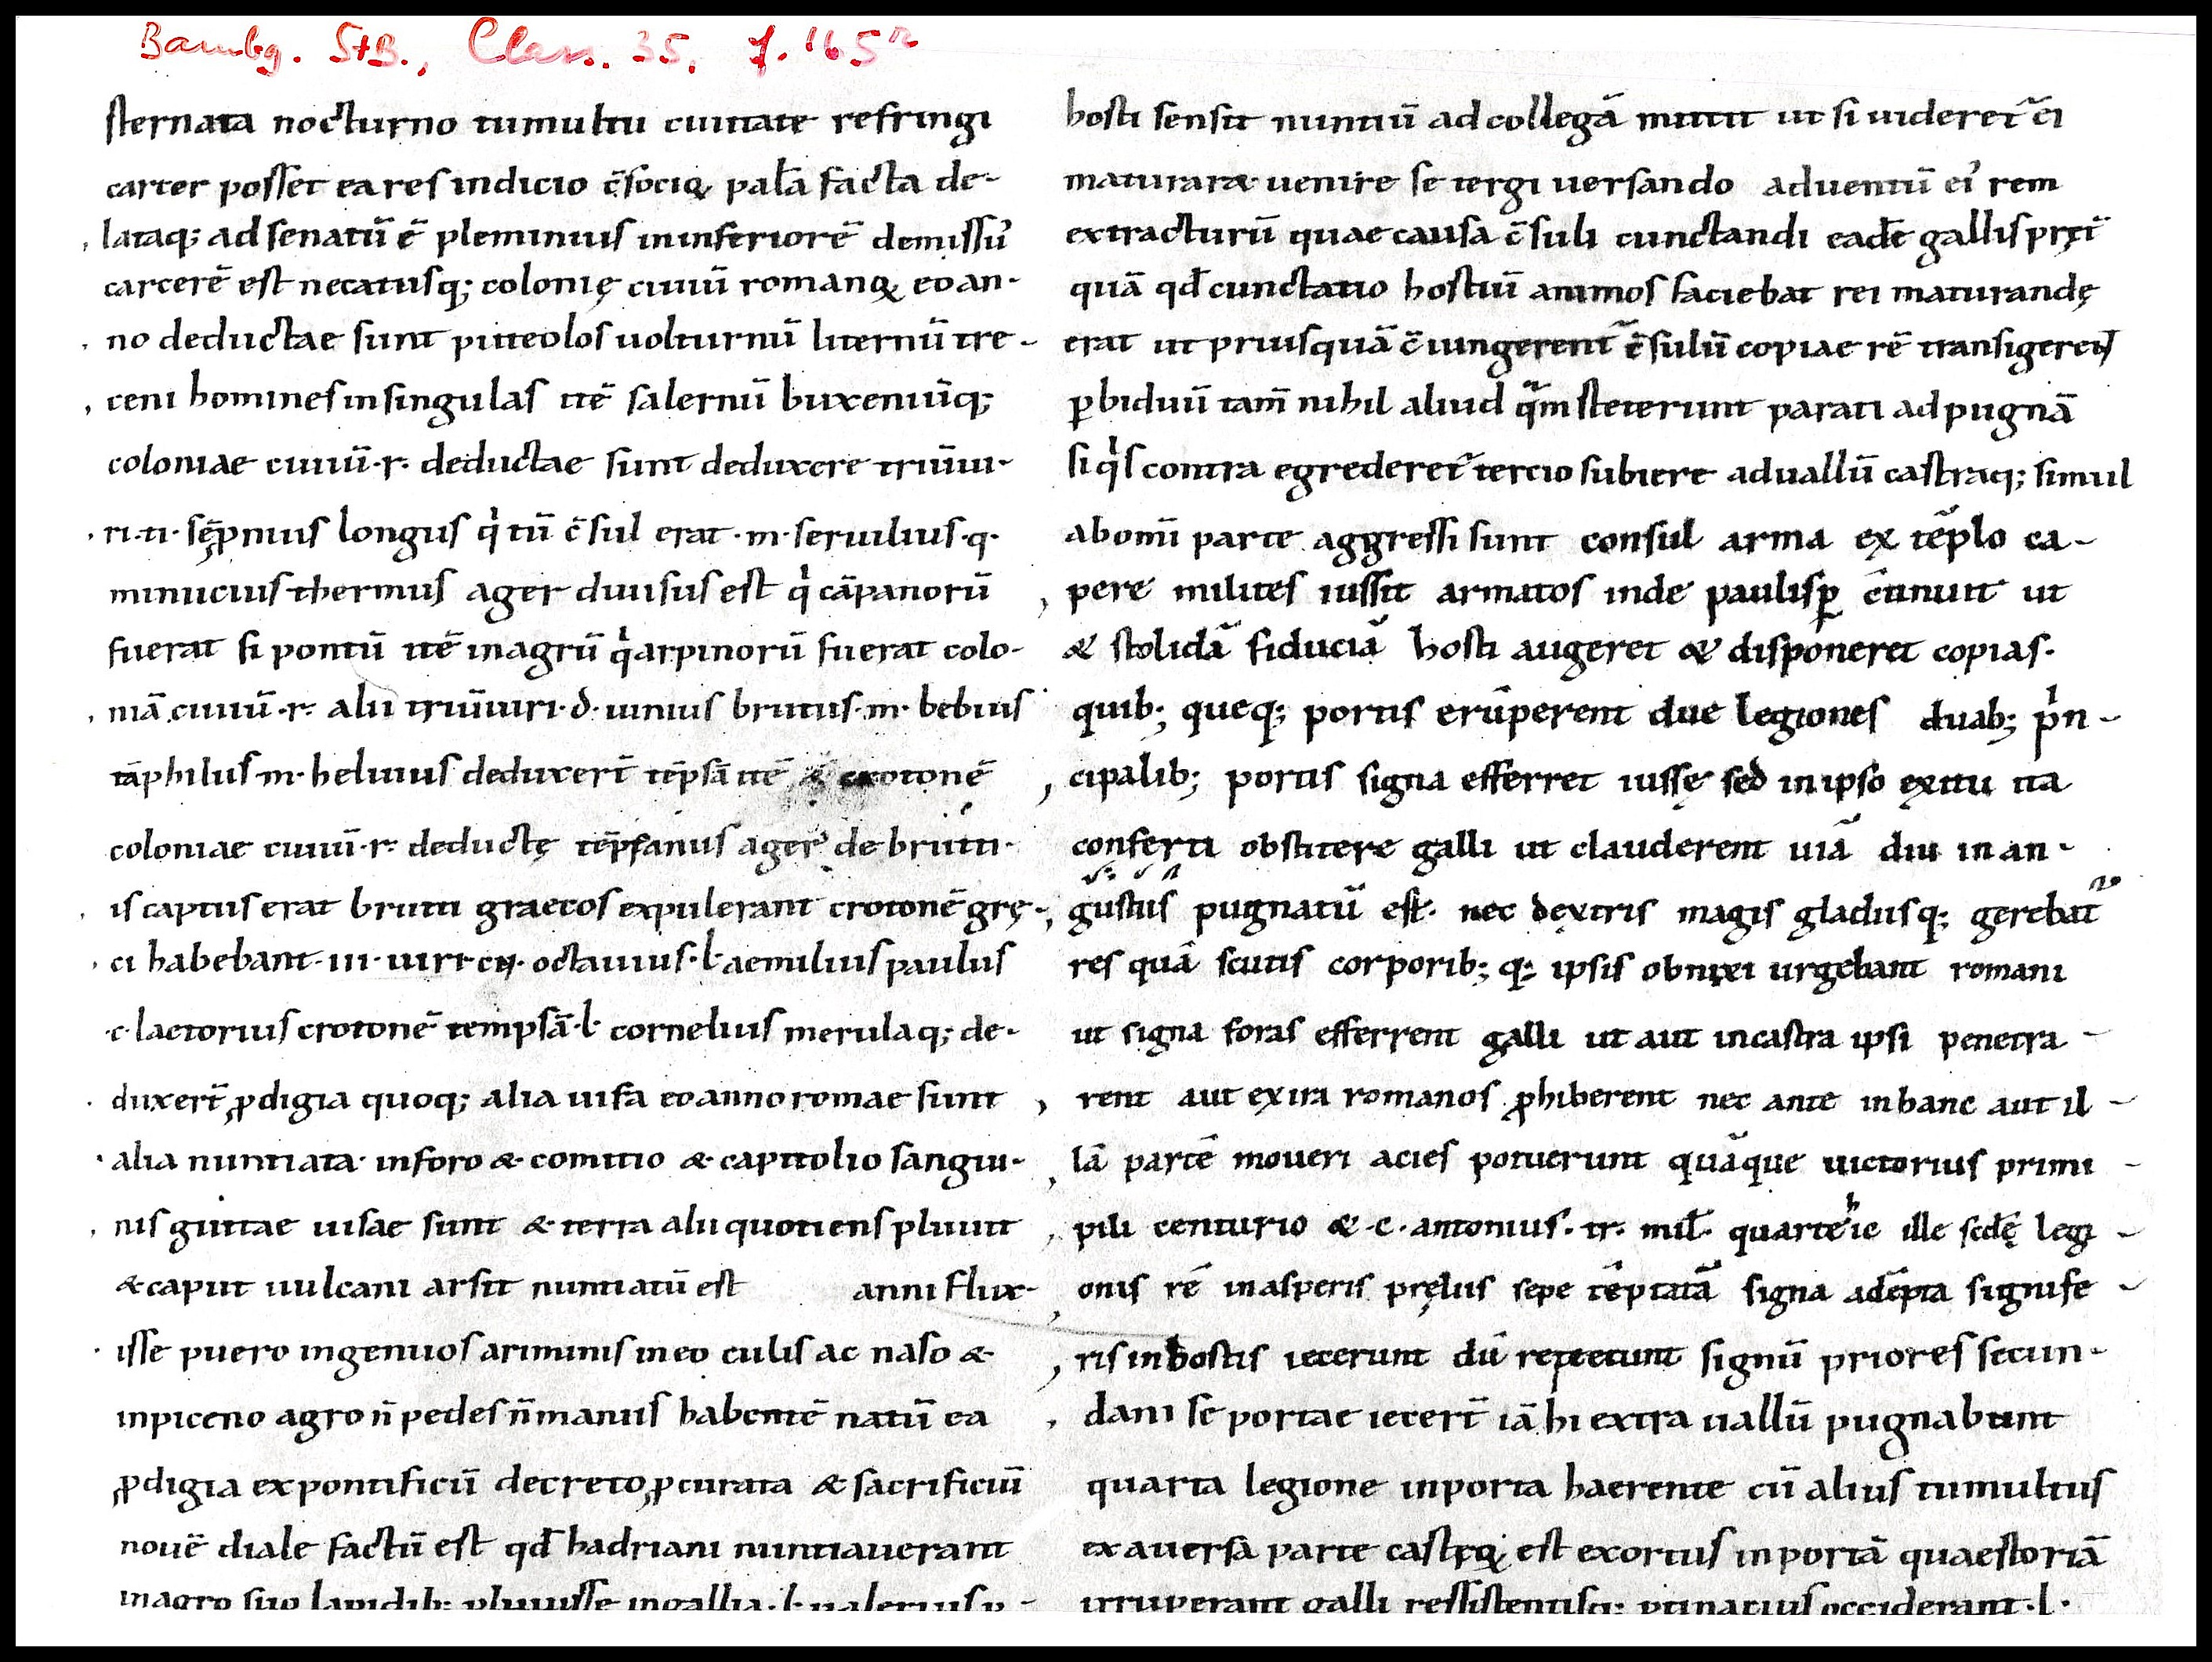 Bambg. StB., Class. 35, f. 165r
sternata nocturno tumultu ciuitate refringi
carcer posset ea res indicio c̄socioꝝ palā facta de-
lataq; ad senatū ē pleminius in inferiorē demissu᾽
carcerē est necatusq; colonię ciuiū romanoꝝ eo an-
no deductae sunt puteolos uolturnū liternū tre-
ceni homines in singulas itē salernū buxentūq;
coloniae ciuiū·r· deductae sunt deduxere triūui-
ri·ti· sēpnius longus qͥ tū c̄sul erat·m·seruilius·q·
minucius thermus ager diuisus est qͥ cāpanorū
fuerat sipontū itē in agrū qͥ arpinorū fuerat colo-
niā ciuiū·r· alii triūuiri·d·iunius brutus·m·bebius
tāphilus·m·heluius deduxer̄t tēpsā itē & crotonē
coloniae ciuiū·r· deductę tēpsanus ager de brutti-
is captus erat brutti graecos expulerant crotonē grę-
ci habebant·iii·uiri·cn·octauius·l·aemilius paulus
·c·laetorius crotonē tempsā·l·cornelius merulaq; de-
duxer̄t ꝓdigia quoq; alia uisa eo anno romae sunt
alia nuntiata· in foro & comitio & capitolio sangui-
nis guttae uisae sunt & terra aliquotiens pluuit
& caput uulcani arsit nuntiatū est anni flux-
isse puero ingenuos ariminis in eo culis ac naso &
in piceno agro n̄ pedes n̄ manus habentē natū ea
ꝓdigia ex pontificū decreto ꝓcurata & sacrificiū
nouē diale factū est qd̄ hadriani nuntiauerant
in agro suo lapidib; pluuisse in gallia·l·ualerius p-
hosti sensit nuntiū ad collegā mittit ut si uideret᷑ ei
maturaret uenire se tergi uersando aduentū ei᾽ rem
extracturū quae causa c̄suli cunctandi eadē gallis pręt᷑
quā qd̄ cunctatio hostiū animos faciebat rei maturandę
erat ut priusquā c̄iungerent᷑ c̄sulū copiae rē transigeret᷑
ꝑ biduū tam̄ nihil aliud qᷓm steterunt parati ad pugnā
si qͥs contra egrederet᷑ tercio subiere ad uallū castraq; simul
ab omī parte aggressi sunt consul arma ex tēplo ca-
pere milites iussit armatos inde paulisꝑ c̄tinuit ut
& stolidā fiduciā hosti augeret & disponeret copias·
quib; queq; portis erūperent due legiones duab; pͥn-
cipalib; portis signa efferret iussę sed in ipso exitu ita
conferti obstitere galli ut clauderent uiā diu in an-
gustiis pugnatū est· nec dextris magis gladiisq; gerebat᷑
res quā scutis corporib; q; ipsis obnixi urgebant romani
ut signa foras efferrent galli ut aut in castra ipsi penetra-
rent aut exira romanos ꝓhiberent nec ante in hanc aut il-
lā partē moueri acies potuerunt quāque uictorius primi-
pili centurio & ·c·antonius·tr·mil̄· quarte hic ille scdę legi-
onis rē in asperis pręliis sepe tēptatā signa adēpta signife-
ris in hostis iecerunt dū repetunt signū priores secun-
dani se portae iecer̄t iā hi extra uallū pugnabant
quarta legione in porta haerente cū alius tumultus
ex auersa parte castroꝝ est exortus in portā quaestoriā
irruperant galli ressistentisq; ptinatius occiderant·l·